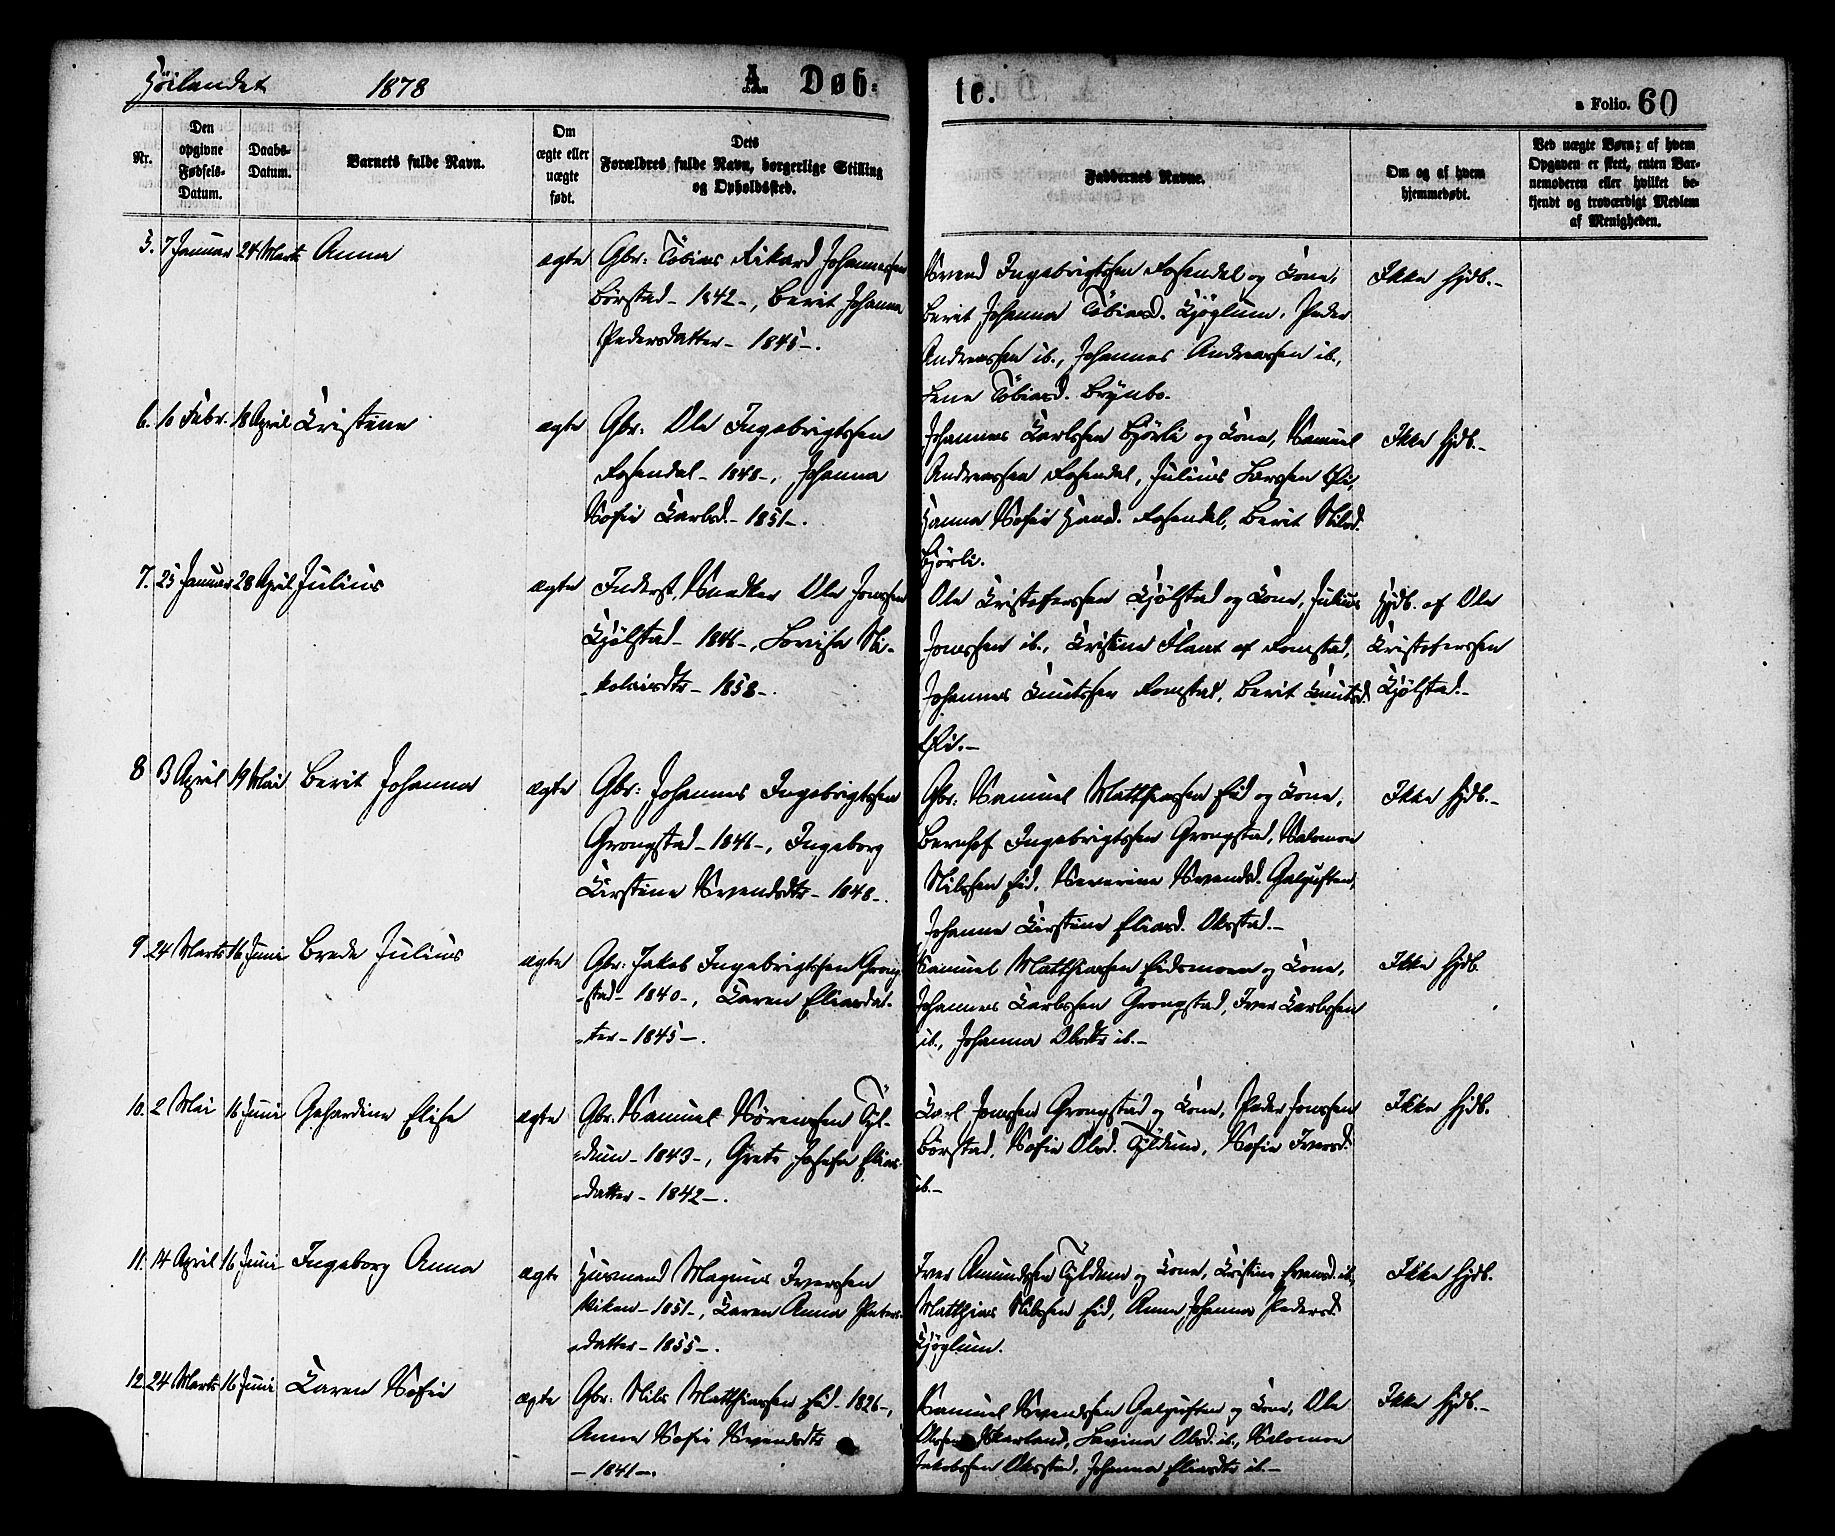 Höilandet 1878 A. Døb-
te.
a Folio. 60
Nr.
Den opgivne Fødsels-Datum.
Daabs-Datum.
Barnets fulde Navn.
Om ægte eller uægte født.
Dets Forældres fulde Navn, borgerlige Stilling og Opholdssted.
Faddernes Navne.
Om og af hvem hjemmedøbt.
Ved uægte Børn; af hvem Opgaven er skeet, enten Barnemoderen eller hvilket bekjendt og troværdigt Medlem af Menigheden.
5. 7 Januar 24 Marts Anna ægte Gbr: Töbias Rikard Johannessen
Börstad - 1842 -, Berit Johanna
Pedersdatter - 1845 -.
Svend Ingebrigtssen Rosendal og Kone,
Berit Johanna Töbiasd. Kjöglum, Peder
Andreassen ib., Johannes Andreassen ib.,
Lene Töbiasd. Brynbo.
Ikke hjdb. -
6. 16 Febr. 18 April Kristine ægte Gbr: Ole Ingebrigtssen
Rosendal - 1848 -, Johanna
Sofie Karlsd. - 1851 -.
Johannes Karlssen Björli og Kone, Samuel
Andreassen Rosendal, Julius Larssen Öie,
Hanna Sofie Hansd. Rosendal, Berit Nilsd.
Björli.
Ikke hjdb. -
7. 25 Januar 28 April Julius ægte Inderst, Snedker Ole Jonssen
Kjölstad - 1846 -, Lovise Ni-
kolaisdtr - 1858 -.
Ole Kristofersen Kjölstad og Kone, Julius
Jonssen ib., Kristine Flaat af Romstad,
Johannes Knutssen Romstad, Berit Knutsd.
Öie. -
Hjdb. af Ole
Kristofersen
Kjölstad. -
8 3 April 19 Mai Berit Johanna ægte Gbr: Johannes Ingebrigtssen
Grongstad - 1846 -, Ingeborg
Kirstine Svendsdtr - 1848 -.
Gbr: Samuel Matthiassen Eid og Kone,
Bernhof Ingebrigtssen Grongstad, Salomon
Nilssen Eid, Severine Svendsd. Galguften,
Johanna Kirstine Eliasd. Okstad. -
Ikke hjdb. -
9. 24 Marts 16 Juni Brede Julius ægte Gbr: Jakob Ingebrigtssen Grong-
stad - 1840 -, Karen Eliasdat-
ter - 1845 -.
Samuel Matthiassen Eidsmoen og Kone,
Johannes Karlssen Grongstad, Iver Karlssen
ib., Johanna Olsdtr ib. -
Ikke hjdb
10. 2 Mai 16 Juni Gehardine Elise ægte Gbr: Samuel Sörenssen Tyl-
dum - 1843 -, Grete Josefa Elias-
datter - 1842 -.
Karl Jonssen Grongstad og Kone, Peder Jonssen
Börstad, Sofie Olsd. Tyldum, Sofie Iversd.
ib. -
Ikke hjdb.
11. 14 April 16 Juni Ingeborg Anna ægte Husmand Magnus Iverssen
Viken - 1851 -, Karen Anna Peters-
datter - 1855 -.
Iver Amundssen Tyldum og Kone, Kristine Evensd. ib.,
Matthias Nilssen Eid, Anna Johanna Pedersd.
Kjöglum.
Ikke hjdb.
12. 24 Marts 16 Juni Karen Sofie ægte Gbr: Nils Matthiassen Eid - 1826 -,
Anne Sofie Svendsdtr
- 1841 -.
Samuel Svendssen Galguften og Kone, Ole
Olssen Skarland, Lavina Olsd. ib., Salomon
Jakobssen Okstad, Johanna Eliasdtr ib. -
Ikke hjdb. -